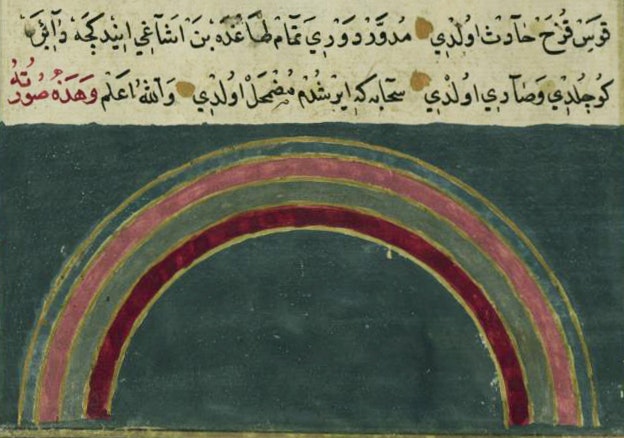 قَوْسِ قُزَحْ حَادِثْ اُولْدِي مُدَوَّرْ دَوْرِي تَمَامْ طَاغْدَه بَنْ اَشَاغِي اِينِيدِكْجَه دَائِرَه
كُوچُلْدِي وَصَارِي اُولْدِي سَحَابَه كه ايرشدم مُضْمَحِلْ اُولْدِي وَاللّٰهُ اَعْلَمْ وَهَذِهِ صُورَتُهُ